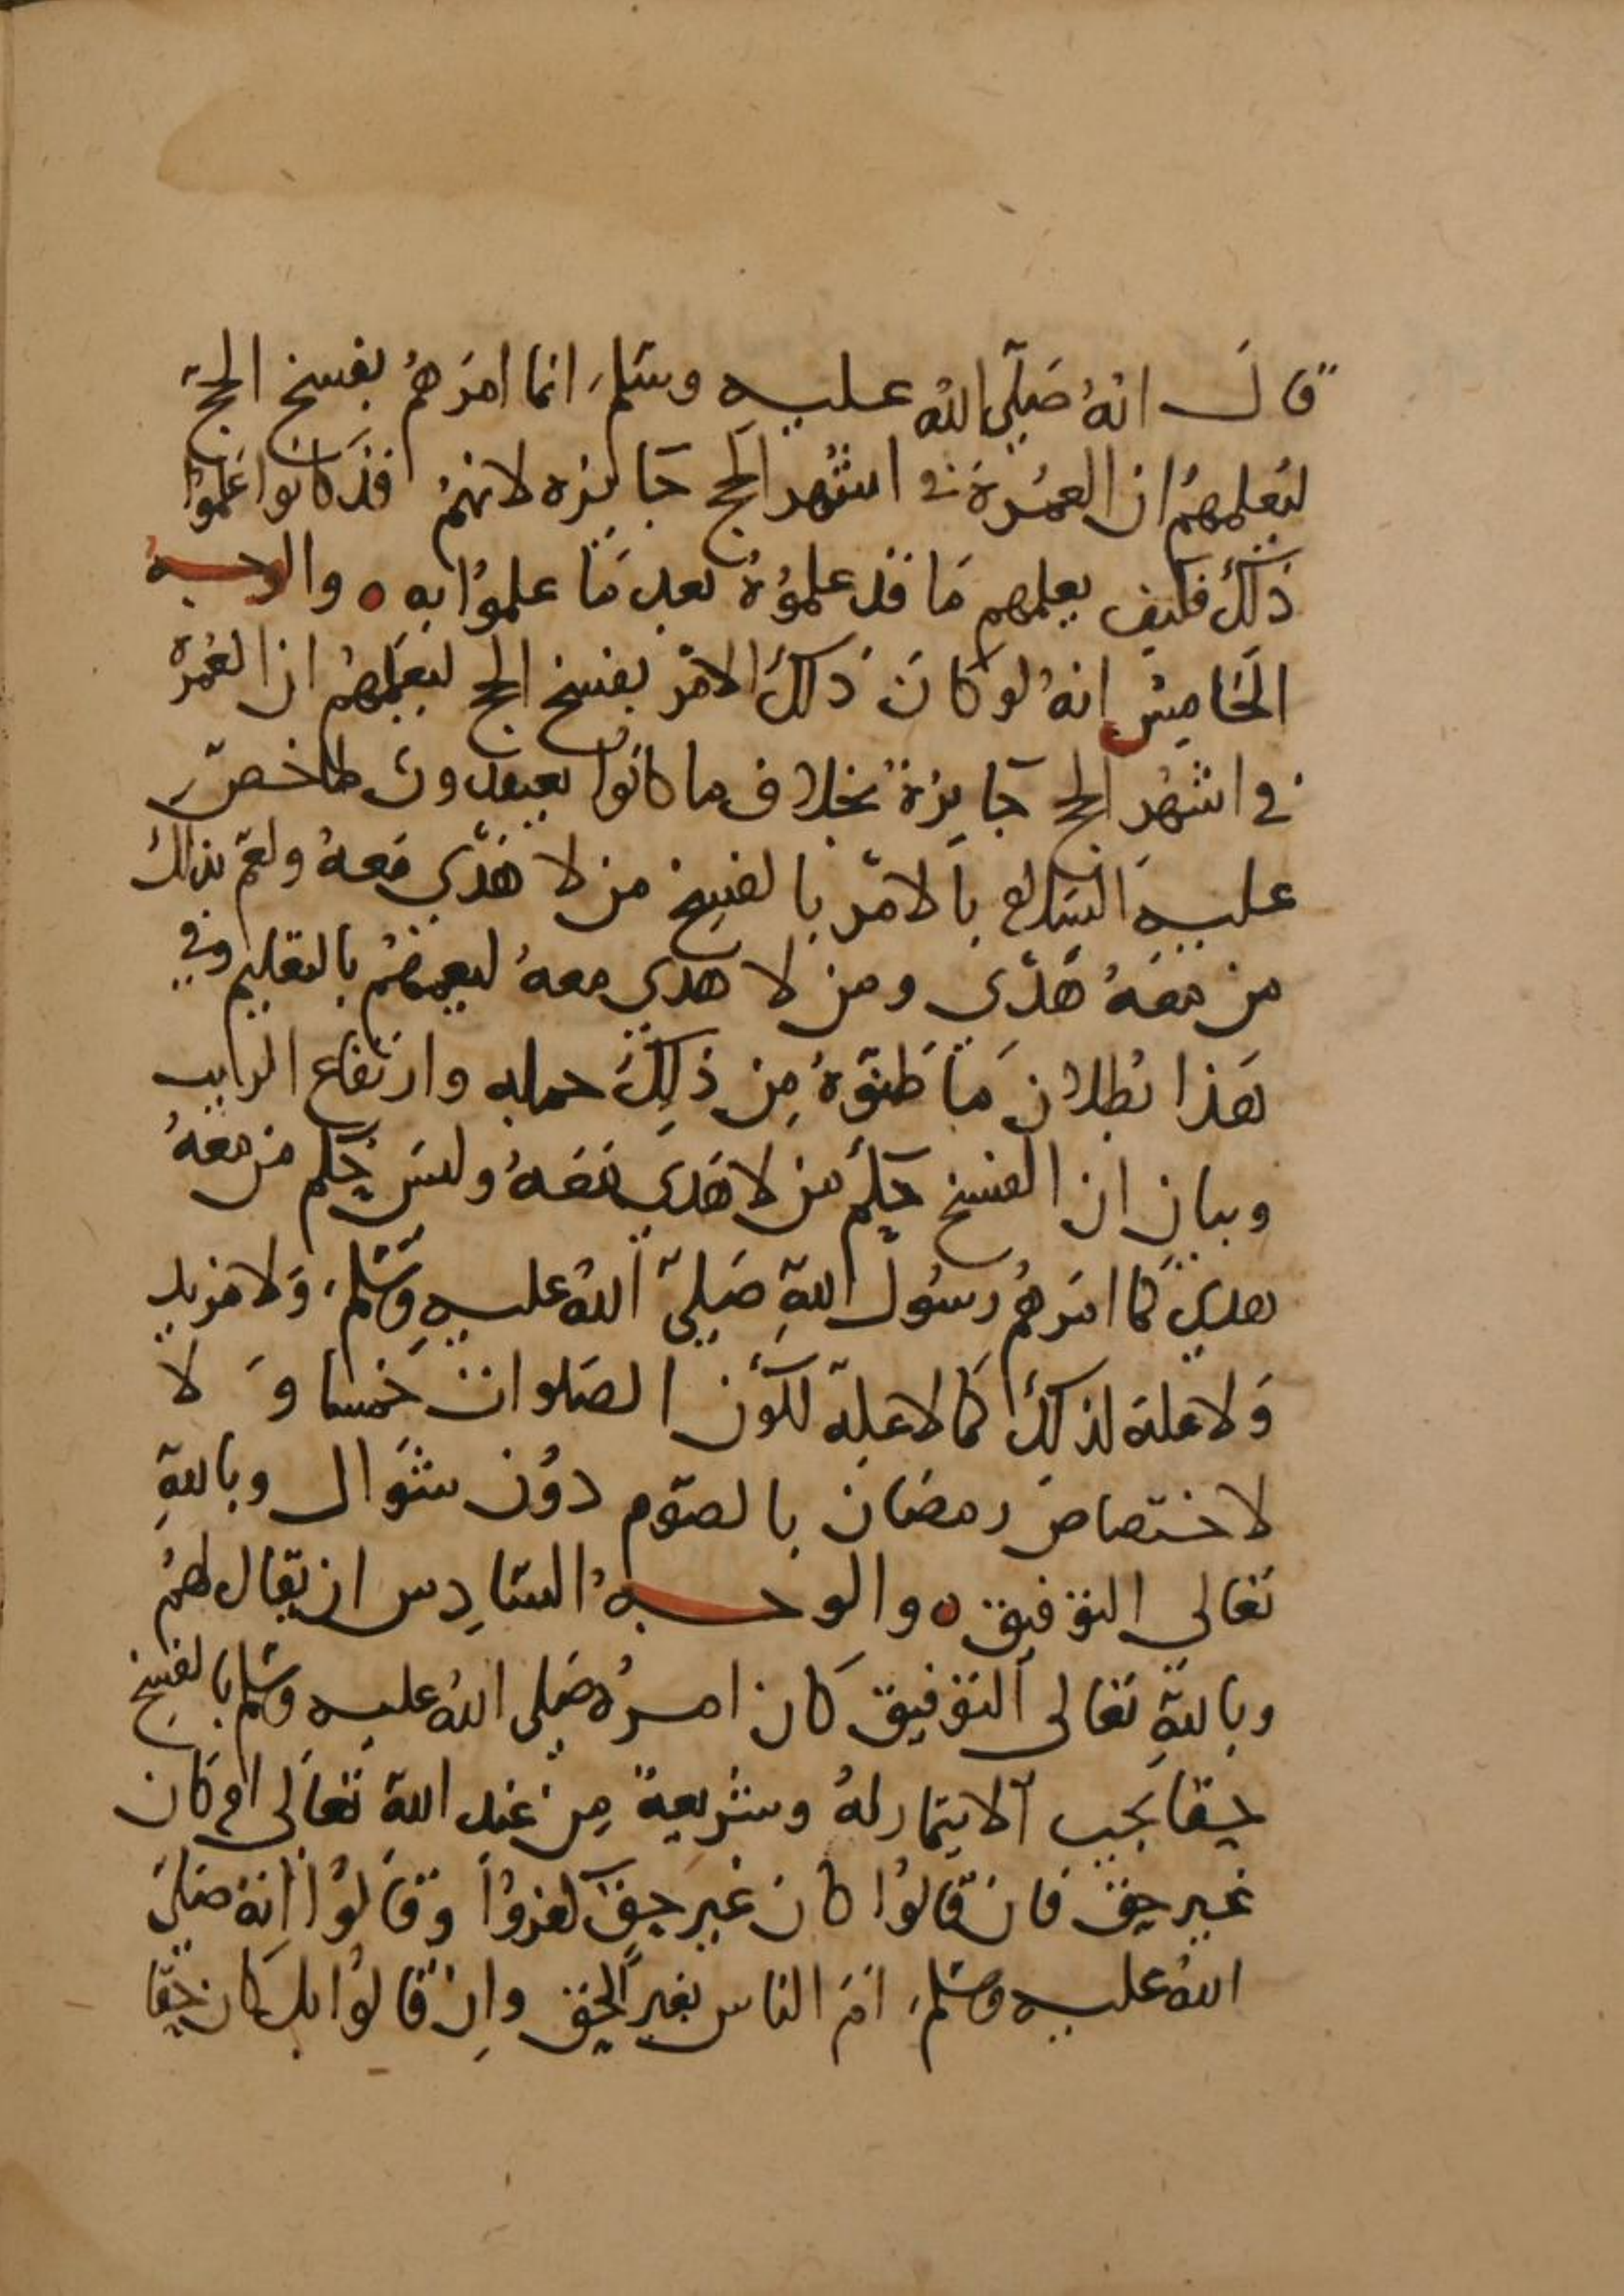 قال انهُ صَلّى اللهُ عليه وسَلّم انما امرَهمُ بفسخ الحجّ
ليُعلمهمُ ان العمُرة في اشهر الحج جَايزه لانهمُ قد كانوا عَلموُا
ذلكَ فكيف يعلمهم مَا قد علموُهُ بعد مَا علموُا به ٥ والوجهُ
الخَامِسُ انهُ لو كانَ ذَلكَ الامر بفسخ الحج ليعَلمهمُ ان العُمرَة
في اشهُر الحج جَايزة بخلاف ما كانوا يعتقدون لما خصّ
عليه السَلام بالامر بالفسخ من لا هَدْي مَعهُ ولعَمّ بذلكَ
من معَهُ هَدْي ومن لا هدي معهُ ليعمهمُ بالتعليم وفي
هَذا بُطلان مَا ظنوّهُ مِن ذلِكَ جمله وارتفَاع الريب
وبيان ان الفسخ حكمُ من لا هَدي مَعَهُ وليسَ حكم من معَهُ
هدي كما امَرهمُ رسُول اللهِ صَلىّ اللهُ عليهِ وسَلّم، وَلا مزيد
وَلا علة لذلكَ كما لا علة لكَون الصَلوات خمسا وَ لا
لاختصاص رمضَان بالصوّم دوُن شوَال وباللهِ
تعَالى التوفيق ٥ والوجهُ السَادِس ان يقال لهمُ
وباللهِ تعَالى التوّفيق كان امرُهُ صَلى اللهُ عليه وسَلّم بالفسخ
حقا يجب الايتمار لهُ وشريعة مِن عند الله تعَالى ام كان
غير حق فان قالوُا كان غير حقّ كفروُا وقالوُا انهُ صَلىَ
اللهُ عليه وسَلّم، امَر الناس بغير الحق وان قالوُا بل كان حقّا